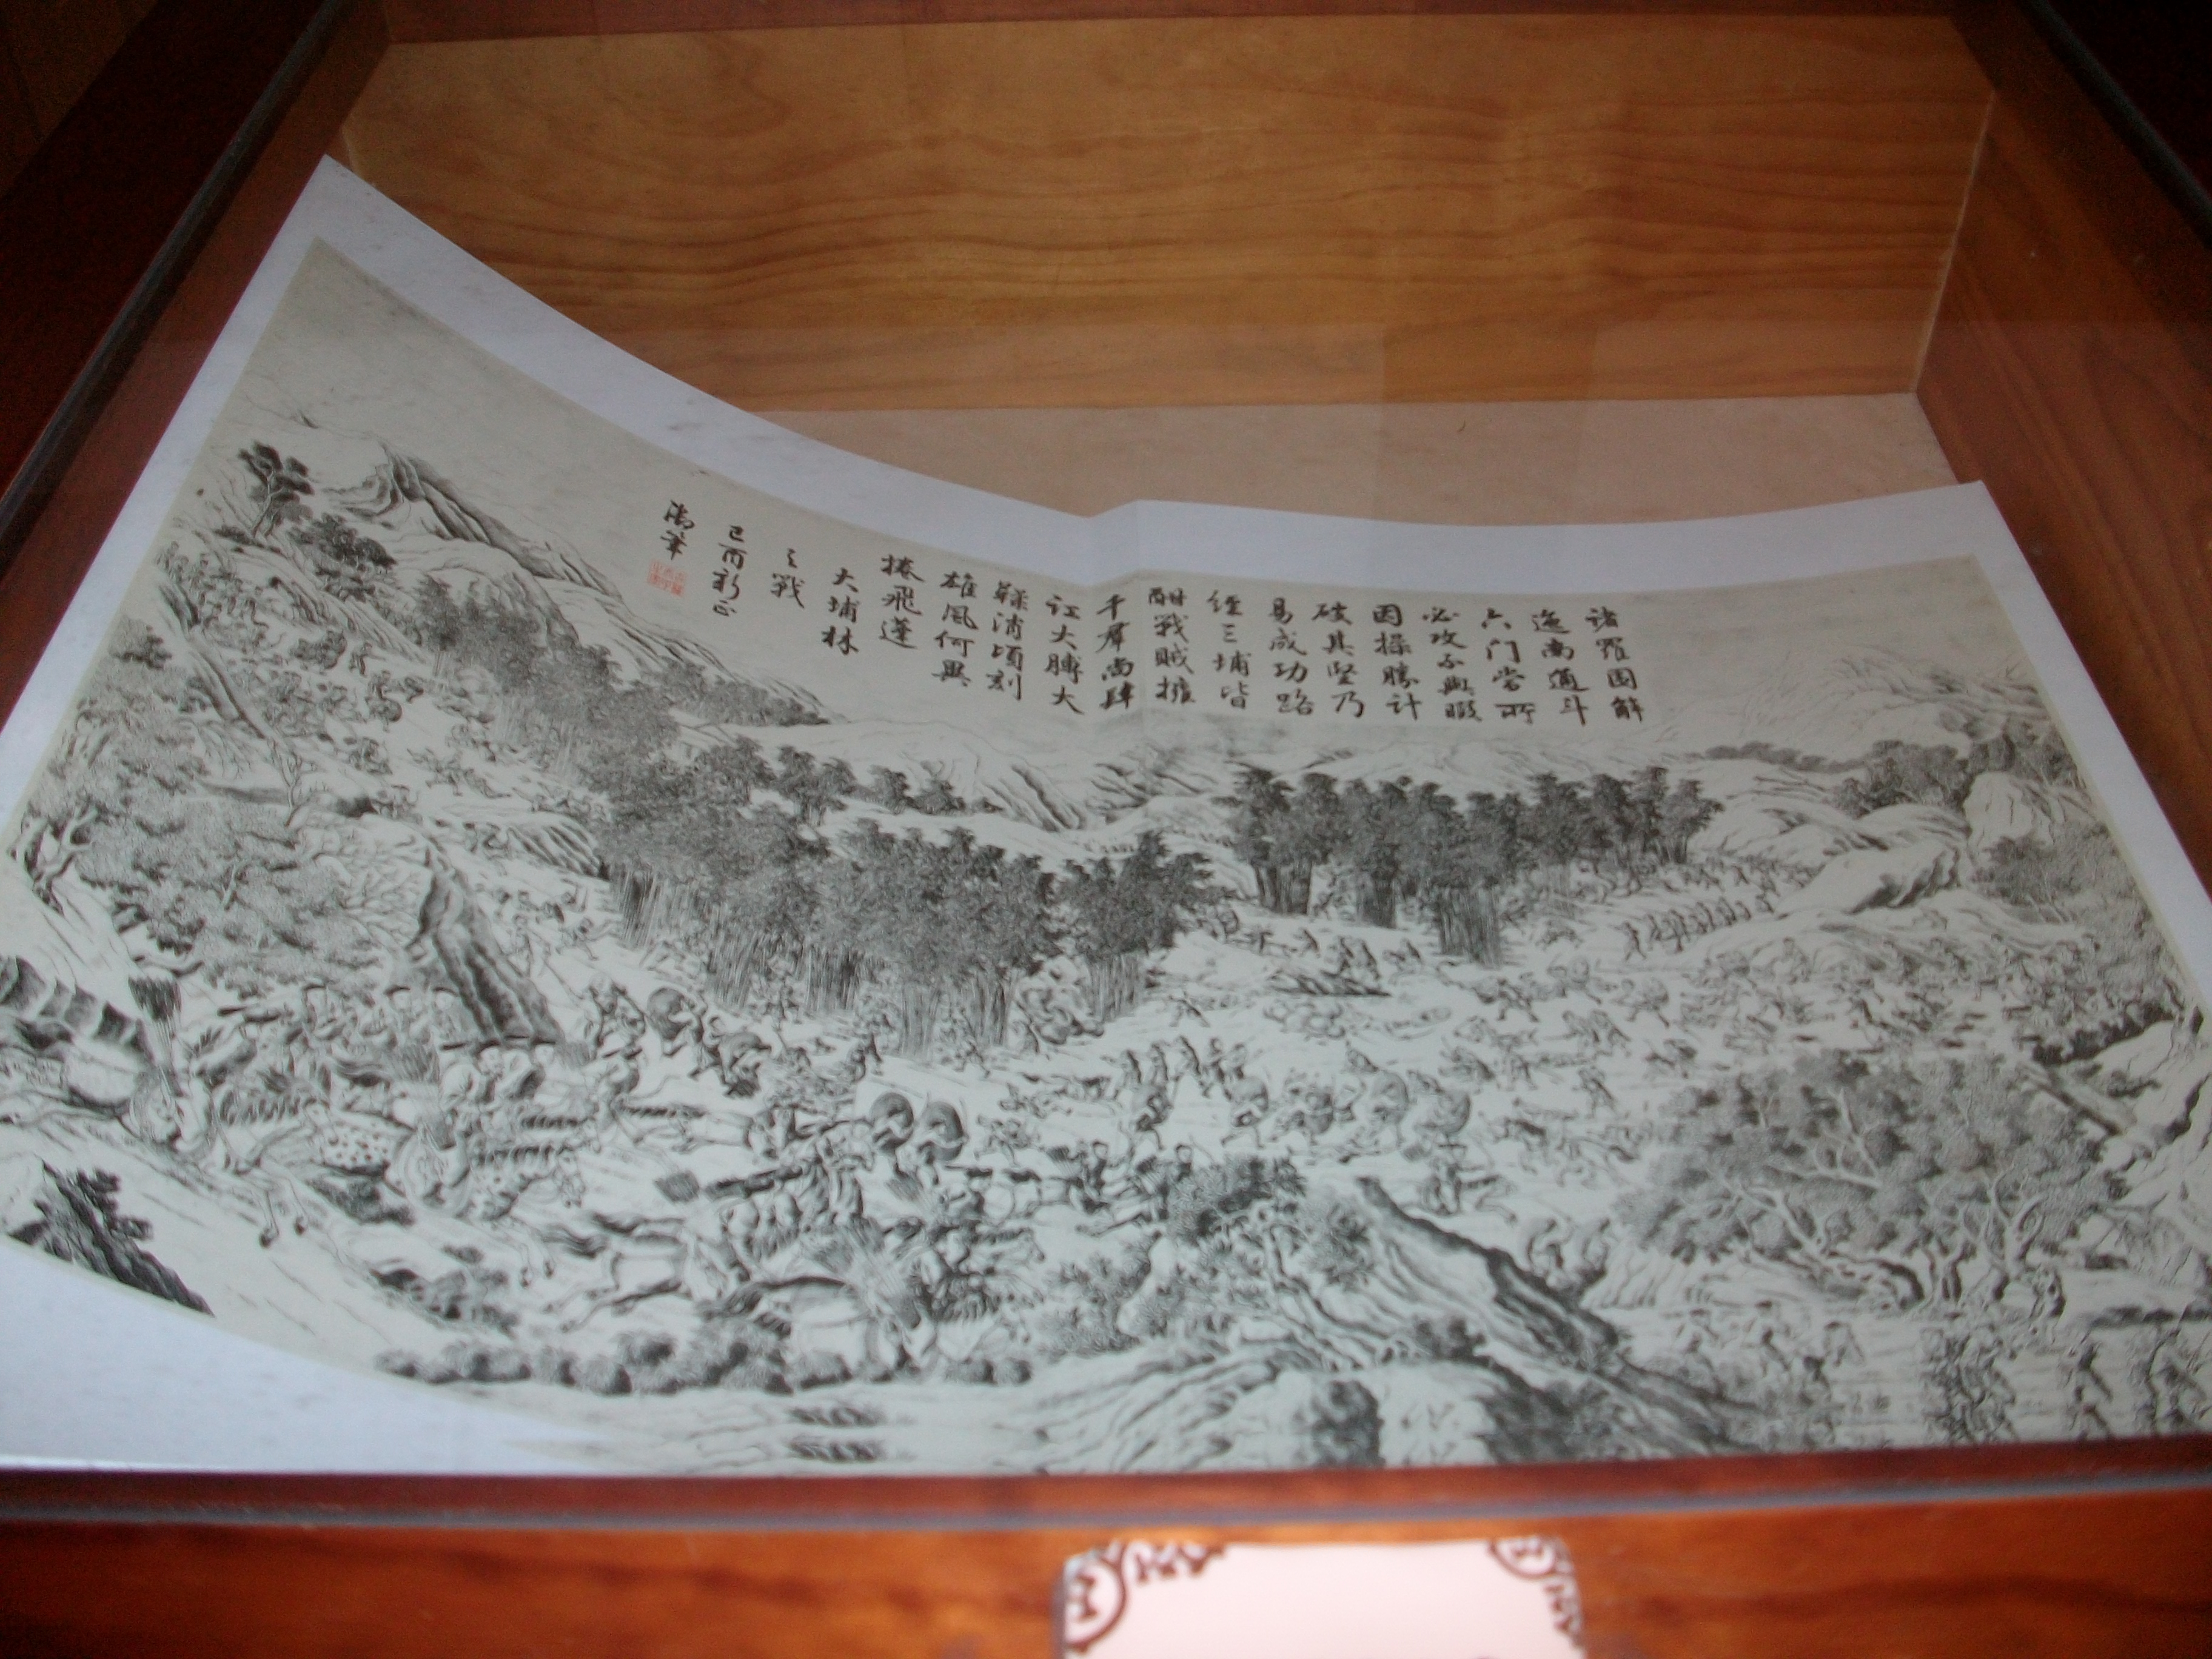 諸羅圍解
迤南通斗
六门嘗所
必攻不與暇
因操勝計
破其堅乃
易成功路
經三埔皆
酣戰賊擁
千羣尚肆
訌大膊大
猱清頃刻
雄風何異
捲飛蓬
大埔林
之戰
己酉新正
御筆